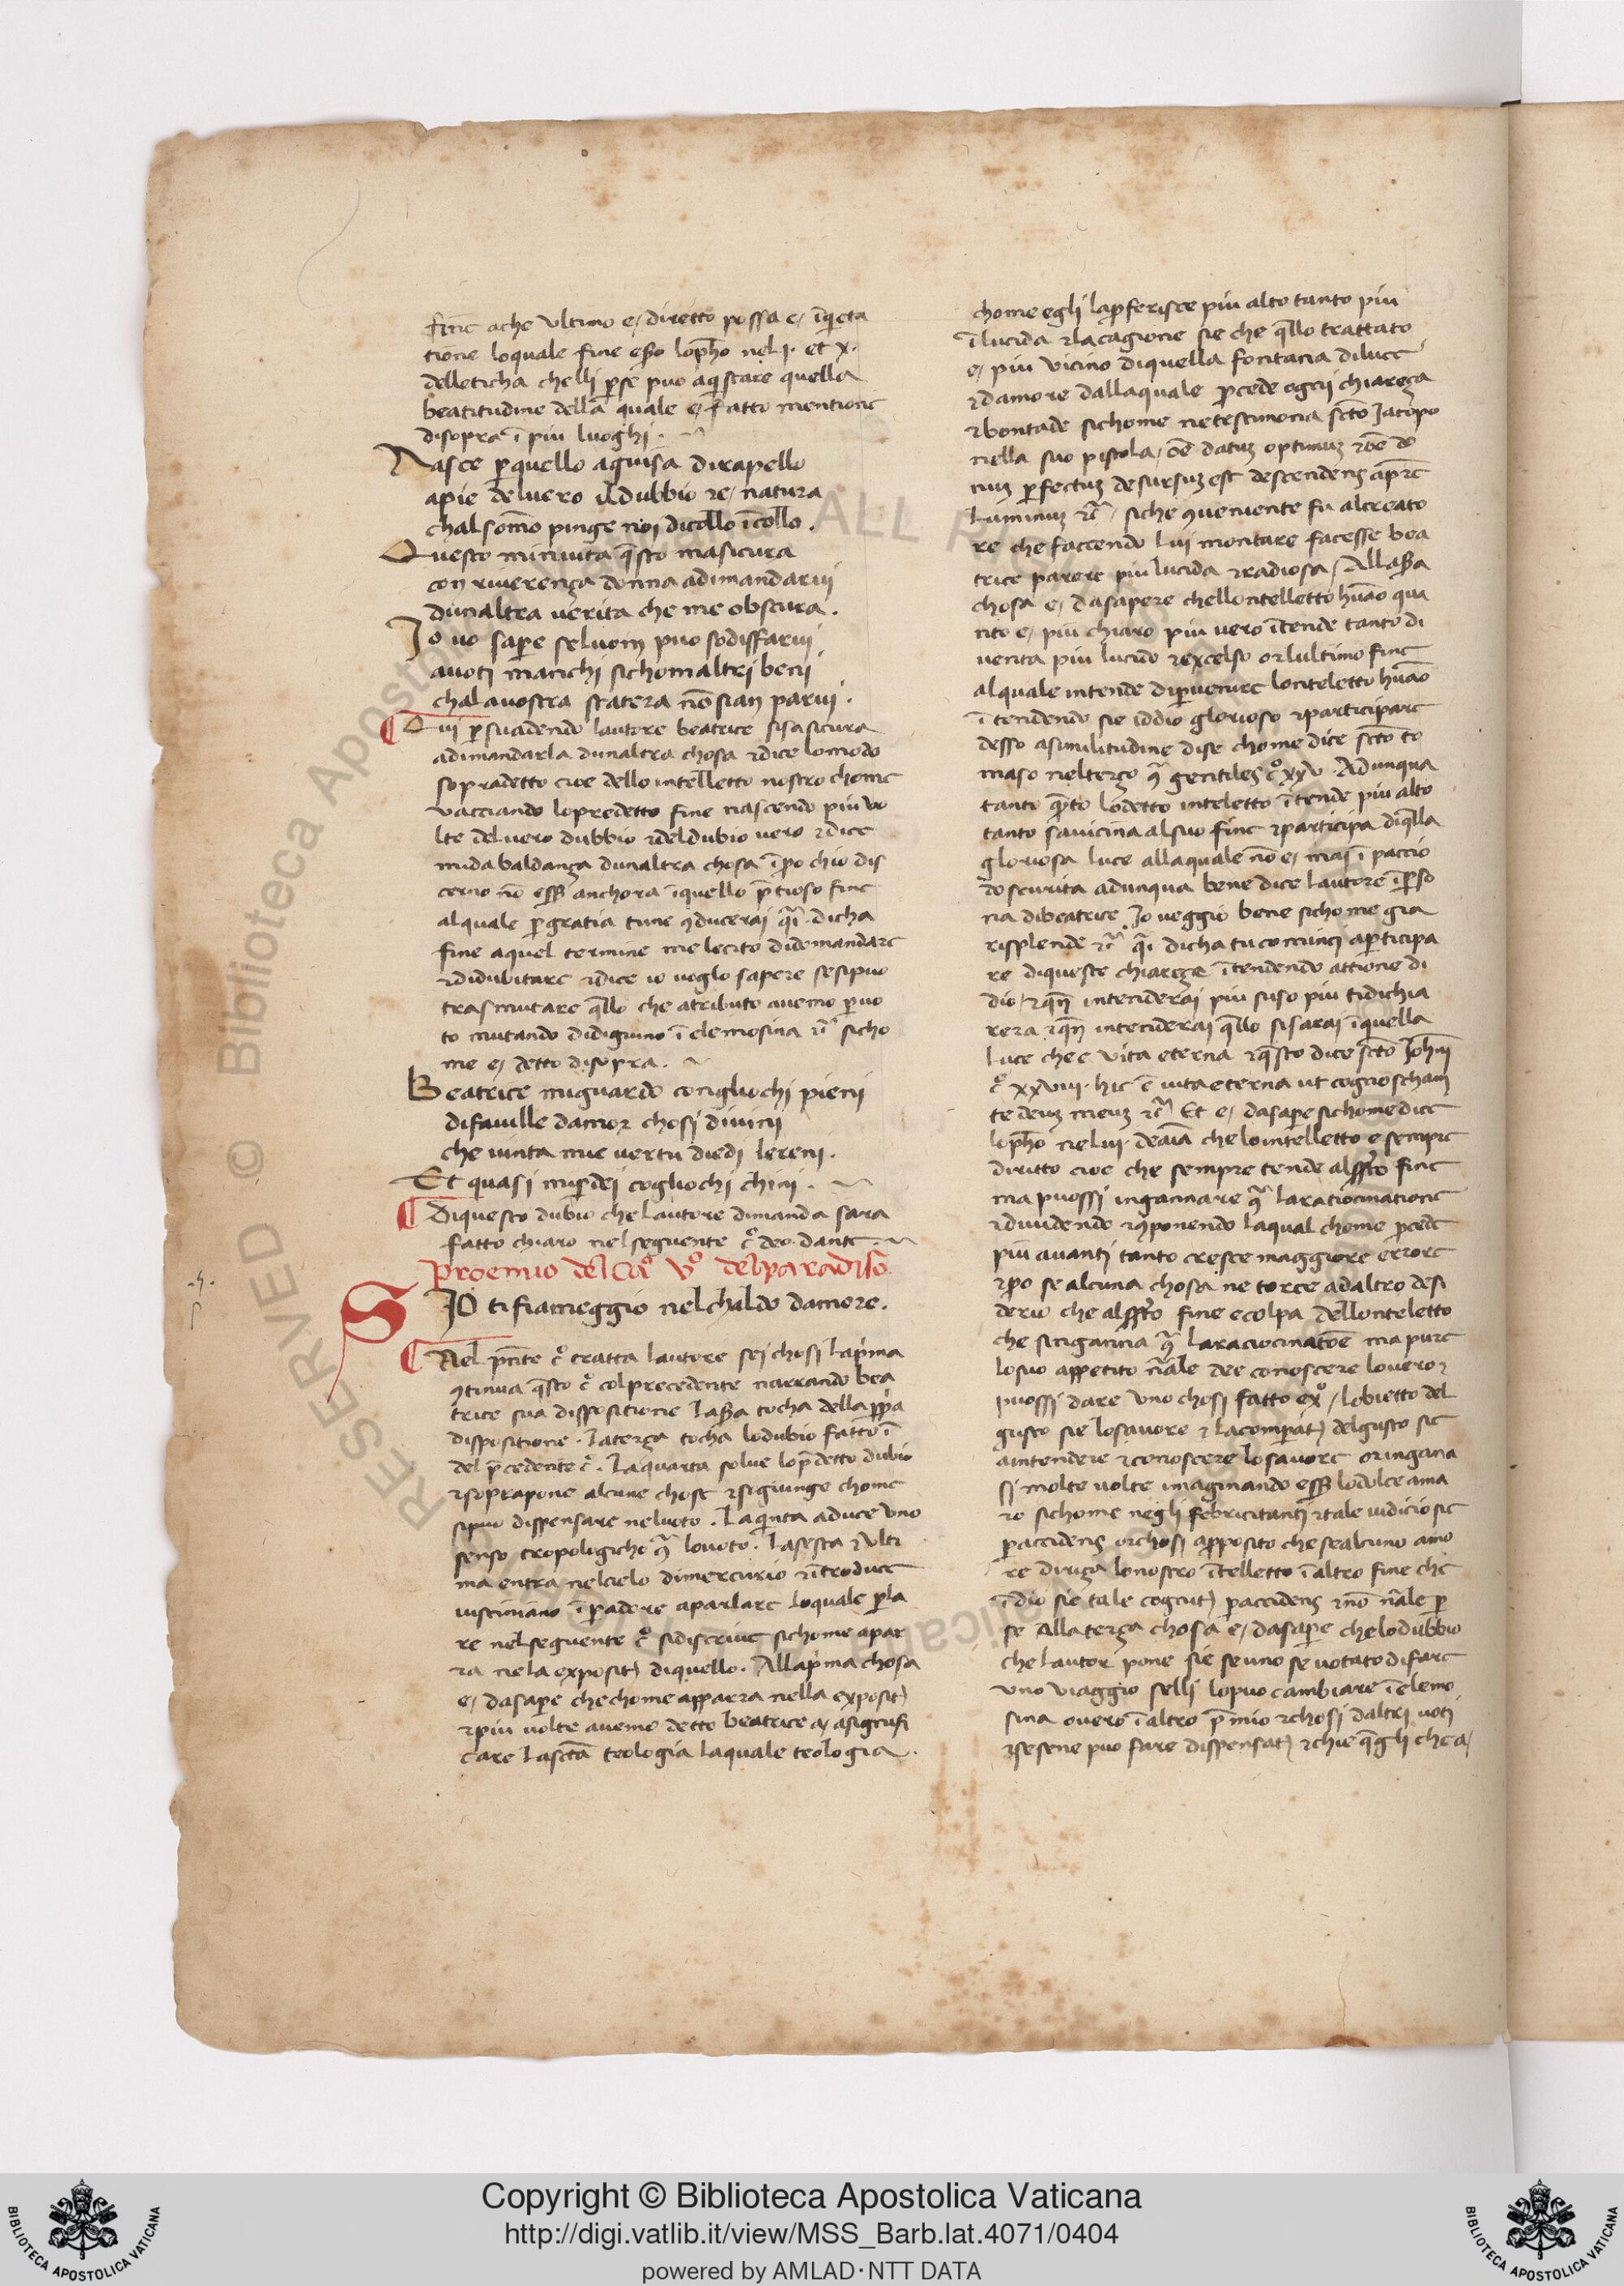 fine ache ultimo e, diretto possa e, īqīeta
tione loquale fine eßo lopħo nel j. et x.
delleticha chelli ꝑse puo aqistare quella
beatitudine della quale e, fatto mentione
disopra ī piu luoghi.
Nasce ꝑquello aguisa dirapello
apie deluero il dubbio ⁊e, natura
chal sōmo pinge noi dicollo īcollo.
Questo minuita q̄sto masicura
con riuerenza donna adimandarui
dunaltra uerita che me obscura.
Jo uo saꝑe seluom puo sodiffarui
auoti manchi sichomaltri beni
chalauostra statera nōsian parui.
Qui ꝑsuadendo lautore beatrice sisasicura
adimandarla dunaltra chosa ⁊dice lomodo
sopradetto cioe dello intelletto nostro chome
vacciando lopredetto fine nascendo piu uo
lte deluero dubbio ⁊deldubio uero ⁊dice
mida baldanza dunaltra chosa īꝑo chio dis
cerno nō eßē anchora īquello p̄tioso fine
alquale ꝑgratia tume ꝯducerai q̄i dicha
fine aquel termine me lecito didomandare
⁊didubitare ⁊dice io uoglo sapere sesipuo
trasmutare q̄llo che atributo auemo ꝑuo
to mutando didigiuno ī elemosina ⁊c̄ sicho
me e, detto disopra.
Beatrice miguardo congliochi pieni
difauille damor chosi diuini
che uinta mie uertu diedi lereni.
Et quasi miꝑdei cogliochi chini.
Diquesto dubio chelautore dimanda sara
fatto chiaro nelseguente c̊ deo dante.
Proemio del Cā̊ v̊ delparadiso
SJO tifiameggio nelchaldo damore.
Nel pn̄te c̊ tratta lautore sei chosi lap̄ma
ꝯtinua q̄sto c̊ colprecedente narrando bea
trice sua dispositione laßa tocha della ꝓpa
dispositione. laterza tocha lodubio fatto ī
del p̄cedente c̊. Laquarta solue lop̄detto dubio
⁊soprapone alcune chose ⁊sigiunge chome
sipuo dispensare neluoto. Laqinta aduce uno
senso tropoligicho q̄ louoto. Lasesta ⁊ulti
ma entra nelcielo dimercurio ⁊ītroduce
iustiniano īꝑadore aparlare loquale ꝑla
re nelseguente c̊ sidiscriue sichome apar
ra nela exposit̄ diquello. Allap̄ma chosa
e, dasaꝑe chechome apparra nella exposit̄
⁊piu uolte auemo detto beatrice a, asignifi
care lasctā teologia laquale teologia
chome egli laꝓferisce piu alto tanto piu
ī lucida ⁊lacagione sie che q̄llo trattato
e, piu uicino diquella fontana diluce
⁊damore dallaquale ꝓcede ogni chiareza
⁊bontade sichome netestimonia sctō Jacopo
nella suo pistola, oē datuz optimuz ⁊oē do
nuz ꝑfectuz desursuz est descendens apr̄e
luminuz ⁊c̄, siche ꝯueniente fu alcreato
re che faccendo lui montare facesse bea
trice parere piu lucida ⁊radiosa, Allaßa
chosa e, dasapere chellontelletto hūāo qua
nto e, piu chiaro piu uero ītende tanto di
uenta piu lucido ⁊excelso orlultimo fine
alquale intende diꝑuenire lonteletto hūāo
ītendendo sie iddio glorioso ⁊participare
desso asimilitudine dise chome dice sctō to
maso nelterzo q̄ gentiles c̊ xxv. Adunqua
tanto q̄nto lodetto inteletto ītende piu alto
tanto sauicina alsuo fine ⁊participa diq̄lla
gloriosa luce allaquale nō e, mai īpaccio
doscurita adunqua bene dice lautore īꝑso
na dibeatrice Jo ueggio bene sichome gia
risplende ⁊c̄ q̄i dicha tu cominci aꝑticipa
re diqueste chiareze ītendendo attione di
dio, ⁊qn̄ intenderai piu suso piu tidichia
rera ⁊qn̄ intenderai q̄llo sisarai īquella
luce che e uita eterna ⁊q̄sto dice sctō Joh̄ni
c̊ xxviii. hic ē uita eterna ut cognoscham
te deuz meuz ⁊c̄ Et e, dasape sichome dice
lopħo nel iii. deaīa chelointelletto e sempre
diritto cioe che sempre tende alsṗto fine
ma puossi ingannare q̄ laratiocinatione
⁊diuidendo ⁊ꝯponendo laqual chome ꝓcede
piu auanti tanto cresce maggiore errore
⁊ꝑo se alcuna chosa ne torce adaltro desi
derio che alsṗto fine e colpa dellonteletto
che singanna q̄ laraciocinatōē ma pure
losuo appetito nāle dee conoscere louero ⁊
puossi dare uno chosi fatto ex̊, lobietto del
gusto sie losauore ⁊ lacomperat̄ delgusto sie
aintendere ⁊conoscere losauore oringana
si molte uolte imaginando eßē lodolce ama
ro sichome negli febricitanti ⁊tale iudicio sie
ꝑaccidens orchosi apposito che sealcuno amo
re diriza lonostro ītelletto ī altro fine che
ī dio sie tale cognit̄ ꝑaccidens ⁊nō nāle ꝑ
se Allaterza chosa e, dasaꝑe chelodubbio
chelautor pone sie seuno se uotato difare
uno uiaggio selli lopuo cambiare ī elemo
sina ouero ī altro p̄mio ⁊chosi daltri uoti
⁊sesene puo fare dispensat̄ ⁊chie q̄gli che a,